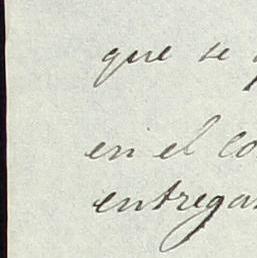 que se
en el co
entrega